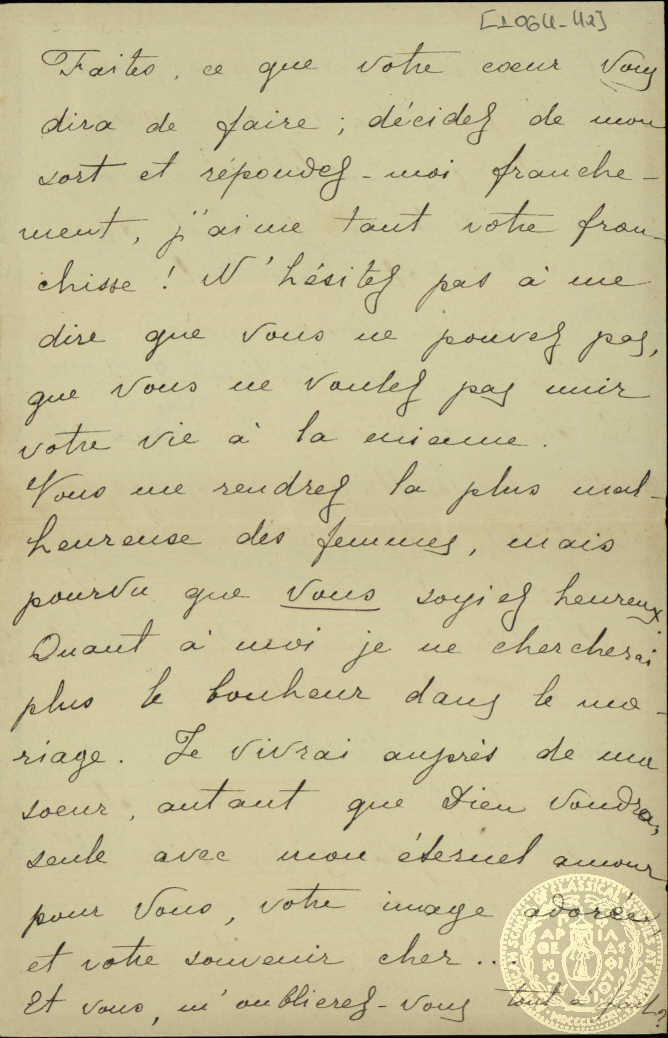 [1064-42]
Faites, ce que votre cœur Vous
dira de faire ; décidez de mon
sort et répondez-moi franche-
ment, j'aime tant votre fran-
chisse ! N'hésitez pas à me
dire que Vous ne pouvez pas,
que Vous ne voulez pas unir
votre vie à la mienne.
Vous me rendrez la plus mal-
heureuse des femmes, mais
pourvu que Vous soyiez heureux.
Quant à moi je ne chercherai
plus le bonheur dans le ma-
riage. Je vivrai auprès de ma
soeur, autant que Dieu voudra,
seule avec mon éternel amour
pour Vous, votre image adorée,
et votre souvenir cher...
Et vous, m'oublierez-vous tout à fait?